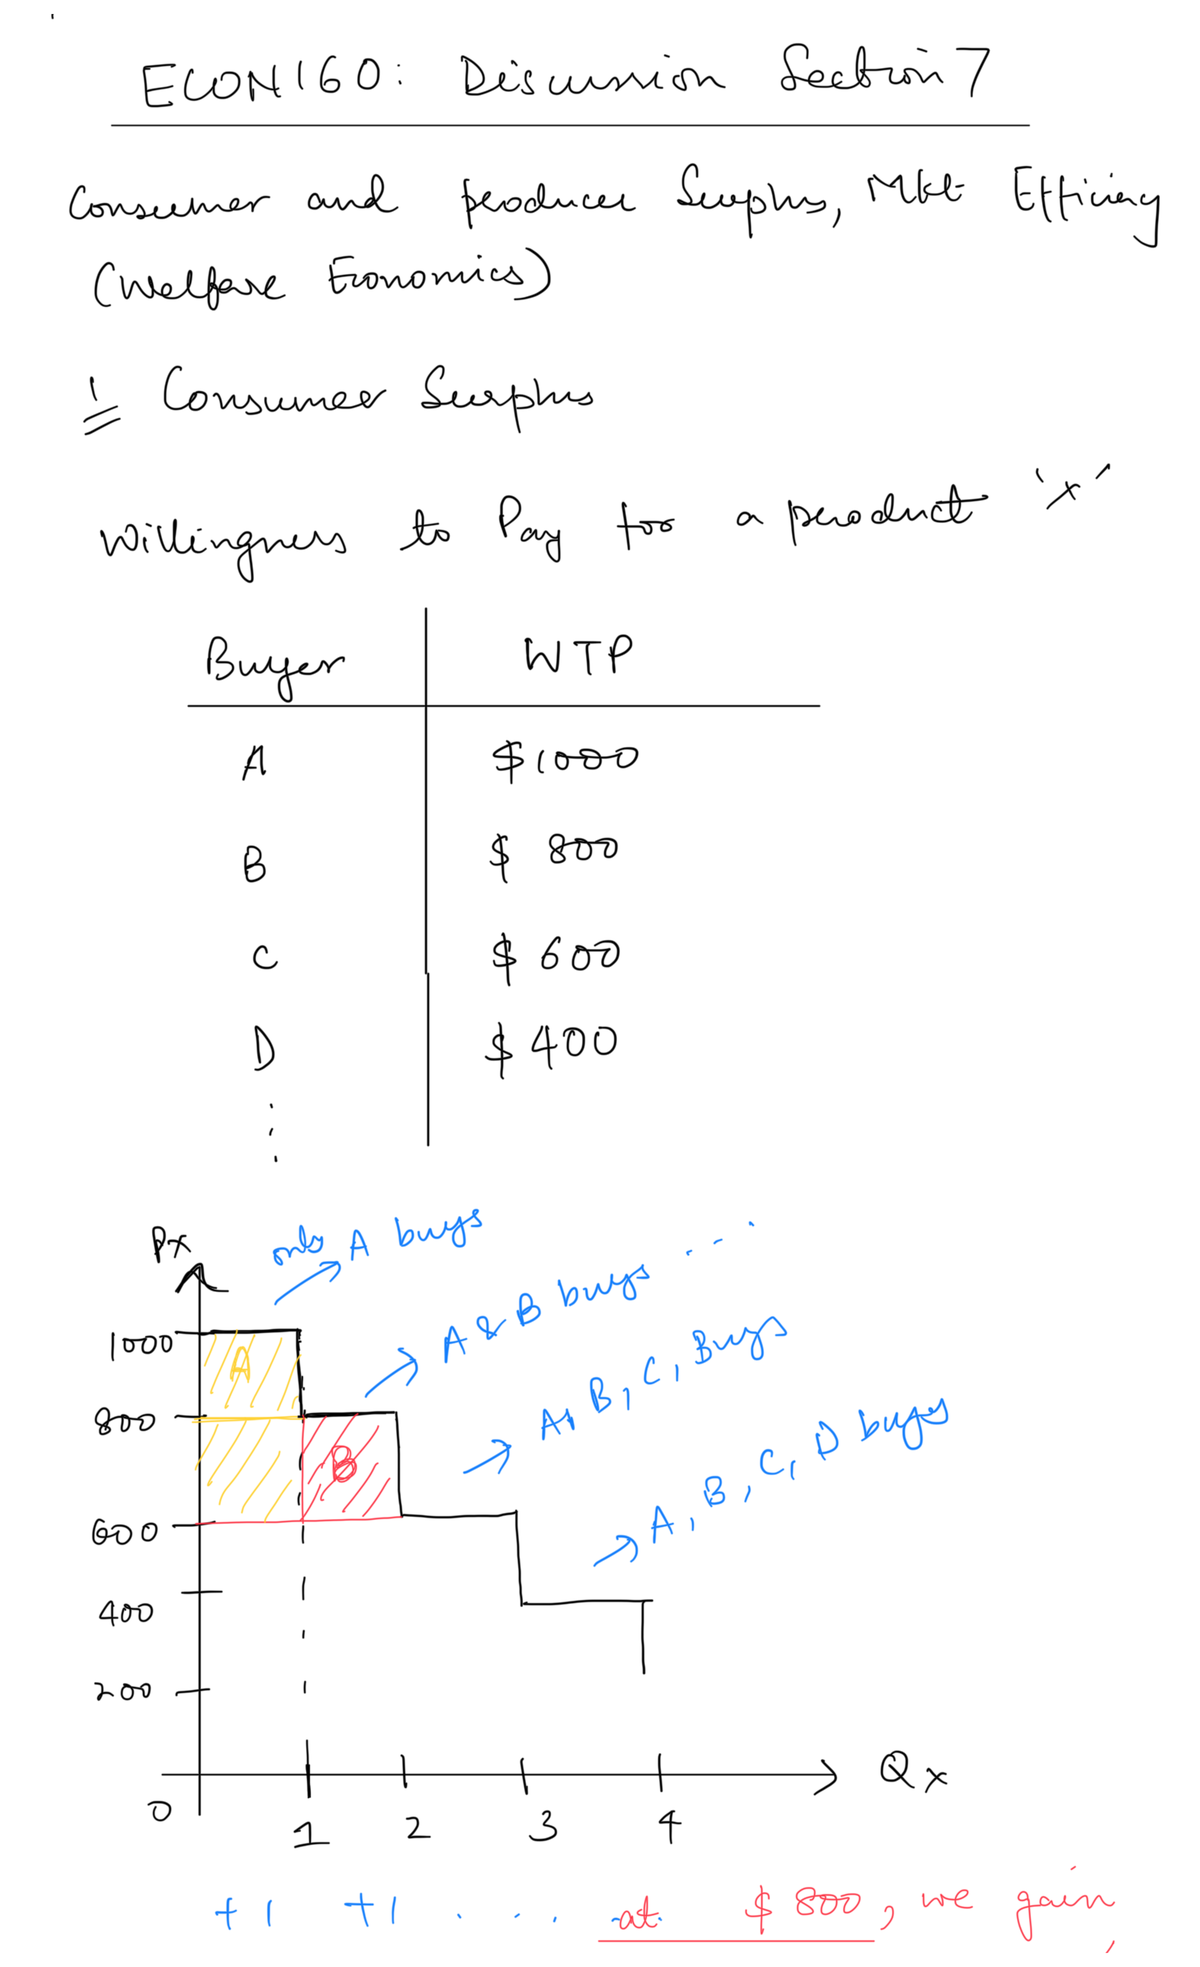 ECON160: Discussion Section 7
Consumer and producer Surplus, Mkt Efficiency
(Welfare Economics)
1 Consumer Surplus
Willingness to Pay for a product 'x'
Buyer WTP
A $1000
B $ 800
C $ 600
D $ 400
⋮
Px
only A buys
A & B buys ...
A, B, C, Buys
A, B, C, D buys
1000
A
800
B
600
400
200
0
1 2 3 4
Qx
+1 +1 . . . at $ 800, we gain,